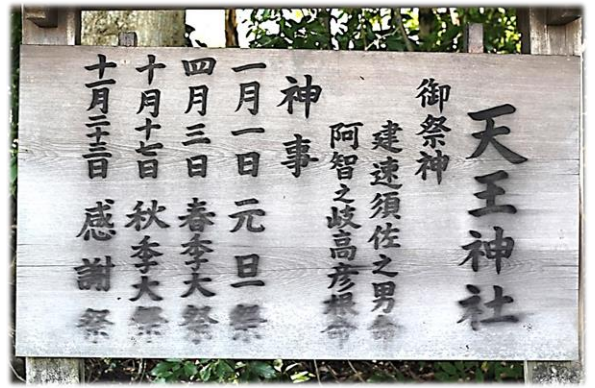 天王神社
御祭神
建速須佐之男命
阿智之岐高彦根命
神事
一月一日 元旦祭
四月三日 春季大祭
十月十七日 秋季大祭
十一月二十三日 感謝祭